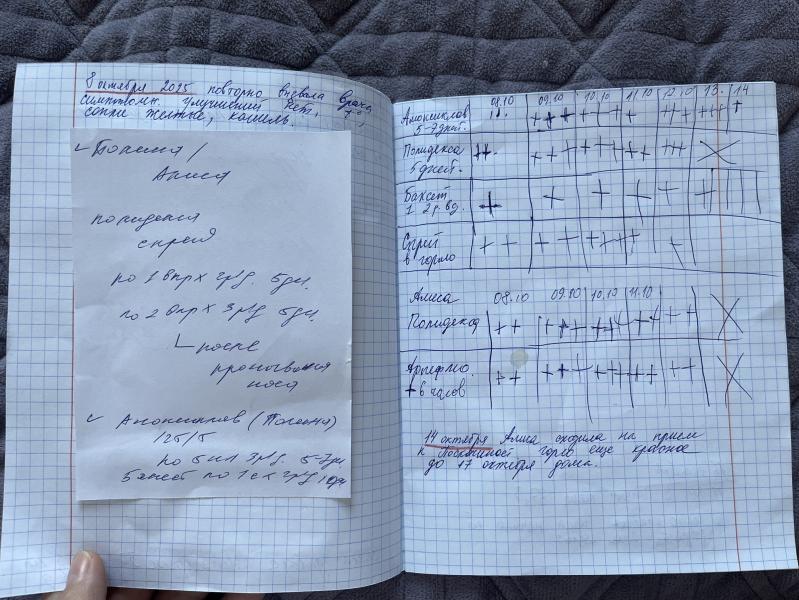 8 октября 2025 повторно вызвала врача,
симптомн. улучшений нет, t°,
сопли желтые, кашель.
Полина /
Алиса
полидекса
спрей
по 1 впр х 2р/д. 5дн.
по 2 впр х 3р/д 5дн.
после
промывания
носа
Амоксиклав (Полина)
125/5
по 5 мл 3р/д 5-7дн.
Баксет по 1с х 2р/д 10дн
08.10 09.10 10.10 11.10 12.10 13. 14
Амоксиклав + + + + + + + + + + + + + + + + +
5-7дней.
Полидекса ++ + + + + + + + + + + + +
5 дней.
Баксет + + + + + +
1 2р.вд.
Спрей + + + + + + + + +
в горло
Алиса 08.10 09.10 10.10 11.10
Полидекса + + + + + + + + + + + + +
+ + + + + + + + + + + + +
+ 6 часов
14 октября Алиса сходила на прием
к горло еще красное
до 17 октября дома.